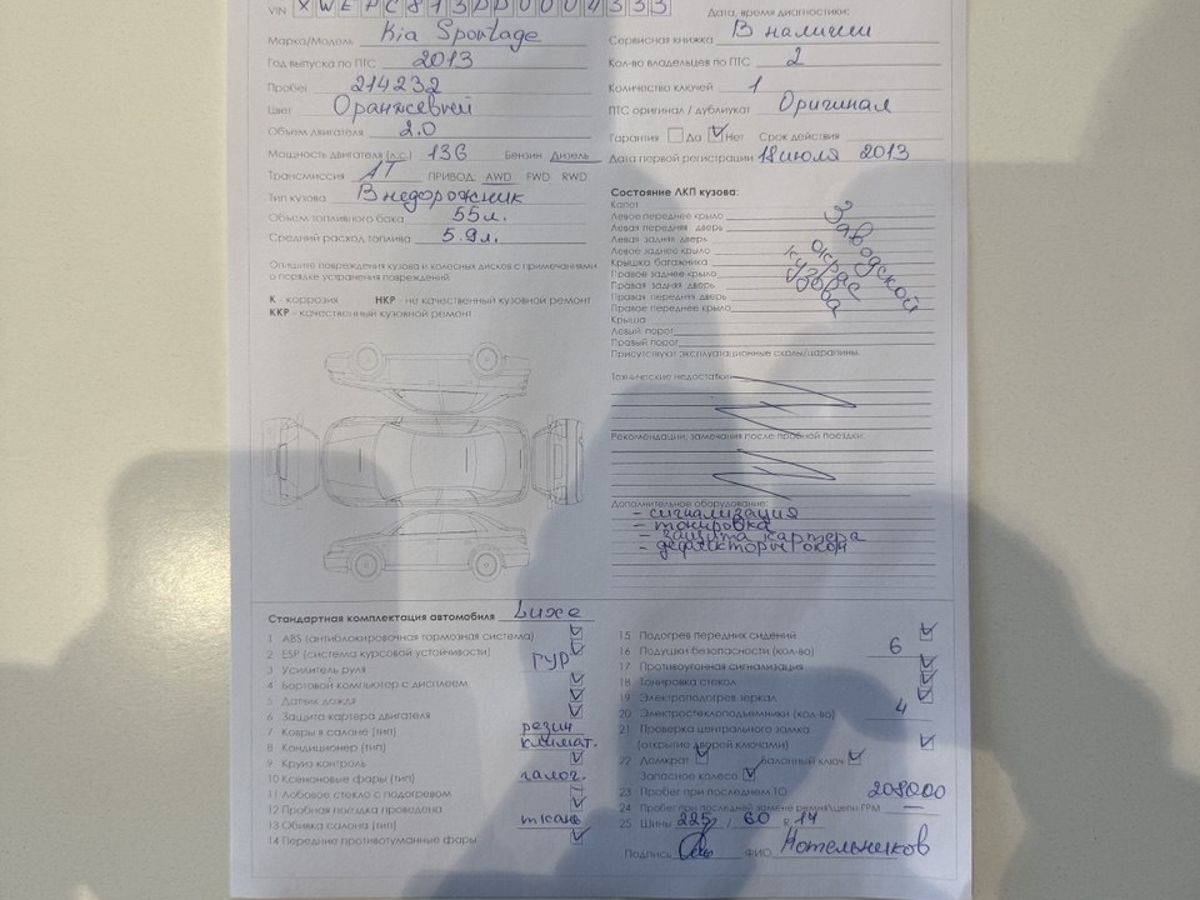 VIN XWEPC813DD0004333
Марка/Модель Kia Sportage
Год выпуска по ПТС 2013
Пробег 214232
Цвет Оранжевый
Объем двигателя 2.0
Мощность двигателя (л.с.) 136 Бензин Дизель
Трансмиссия АТ ПРИВОД: AWD FWD RWD
Тип кузова Внедорожник
Объем топливного бака 55л.
Средний расход топлива 5.9л.
Опишите повреждения кузова и колесных дисков с примечаниями
о порядке устранения повреждений
К - коррозия НКР - не качественный кузовной ремонт
ККР - качественный кузовной ремонт
Дата, время диагностики:
Сервисная книжка В наличии
Кол-во владельцев по ПТС 2
Количество ключей 1
ПТС оригинал / дубликат Оригинал
Гарантия Да Нет Срок действия
Дата первой регистрации 18 июля 2013
Состояние ЛКП кузова:
Капот
Левое переднее крыло
Левая передняя дверь
Левая задняя дверь
Левое заднее крыло
Крышка багажника
Правое заднее крыло
Правая задняя дверь
Правая передняя дверь
Правое переднее крыло
Крыша
Левый порог
Правый порог
Заводской
окрас
кузова
Присутствуют эксплуатационные сколы/царапины.
Технические недостатки
Рекомендации, замечания после пробной поездки:
Дополнительное оборудование:
- сигнализация
- тонировка
- защита картера
- дефлекторы окон
Стандартная комплектация автомобиля Luxe
1 ABS (антиблокировочная тормозная система)
2 ESP (система курсовой устойчивости)
3 Усилитель руля ГУР
4 Бортовой компьютер с дисплеем
5 Датчик дождя
6 Защита картера двигателя
7 Ковры в салоне (тип) резин
8 Кондиционер (тип) климат.
9 Круиз контроль
10 Ксеноновые фары (тип) галог.
11 Лобовое стекло с подогревом
12 Пробная поездка проведена
13 Обивка салона (тип) ткань
14 Передние противотуманные фары
15 Подогрев передних сидений
16 Подушки безопасности (кол-во) 6
17 Противоугонная сигнализация
18 Тонировка стекол
19 Электроподогрев зеркал
20 Электростеклоподъемники (кол-во) 4
21 Проверка центрального замка
(открытие дверей ключами)
22 Домкрат Балонный ключ
Запасное колесо
23 Пробег при последнем ТО 208000
24 Пробег при последней замене ремня/цепи ГРМ —
25 Шины 225 / 60 R 17
Подпись ФИО Котельников